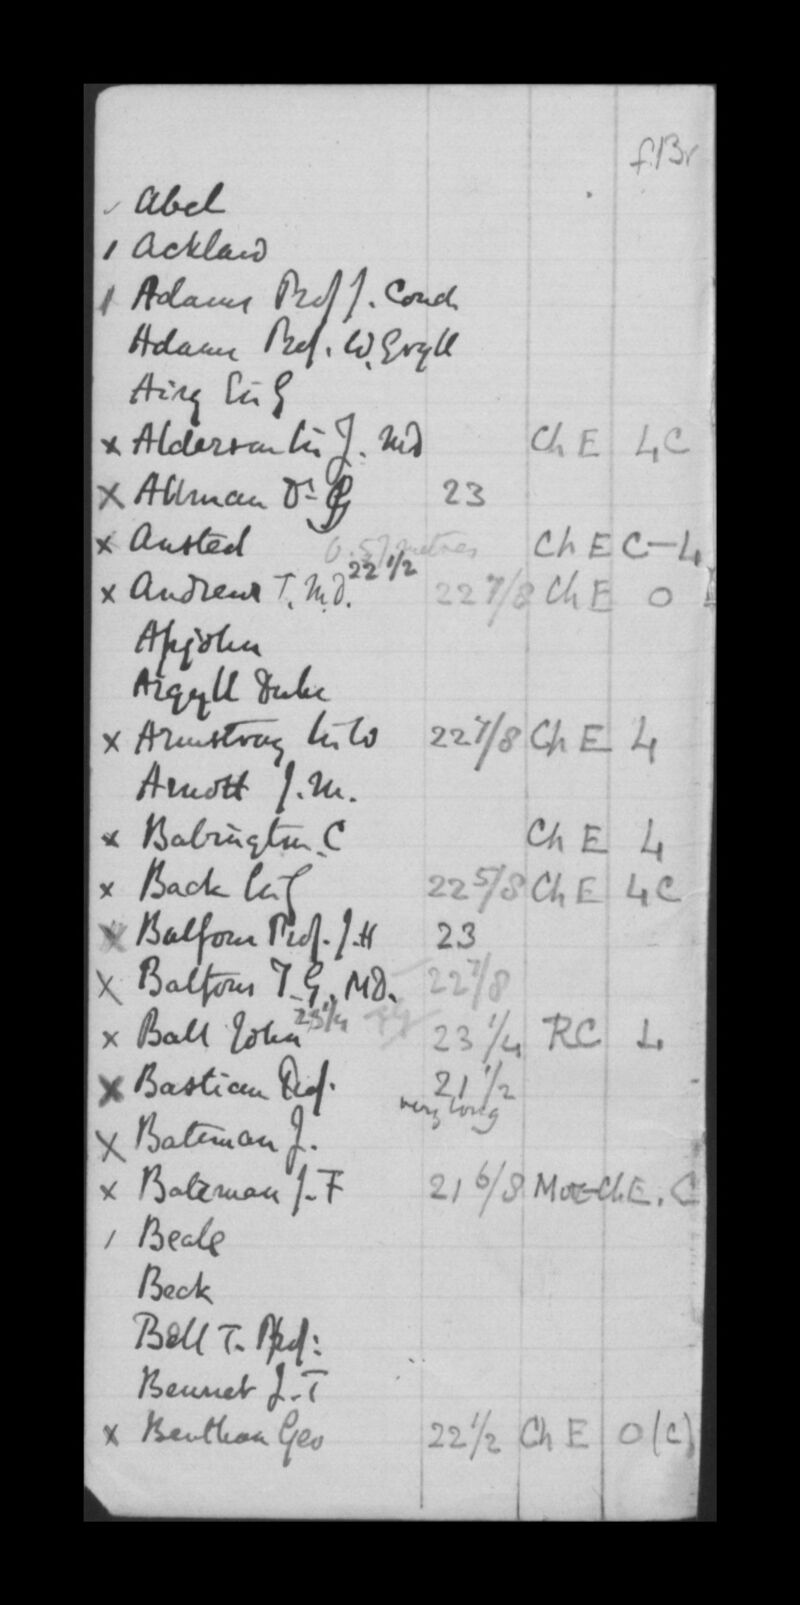 f. Br
Abel
Ackland
Adams Prof J. Couch
Adams Prof. W. Gryll
Airy Sir G
x Alderson Sir J. MD Ch E 4 C
x Allman Dr G 23
x Ansted 0.57 metres Ch E C-4
x Andrews T. M.D. 22 1/2 22 7/8 Ch E O
Apjohn
Argyll Duke
x Armstrong Sir W 22 7/8 Ch E 4
Arnott J. M.
x Babington C Ch E 4
x Back Sir G 22 5/8 Ch E 4 C
x Balfour Prof. J. H 23
x Balfour T. G. MD. 22 7/8
x Ball John 23 1/4 23 1/4 RC 4
x Bastian Prof. 21 1/2
very long
x Bateman J.
x Bateman J. F 21 6/8 Ch E. C
/ Beale
Beck
Bell T. Prof:
Bennet J. T
x Bentham Geo 22 1/2 Ch E O (C)